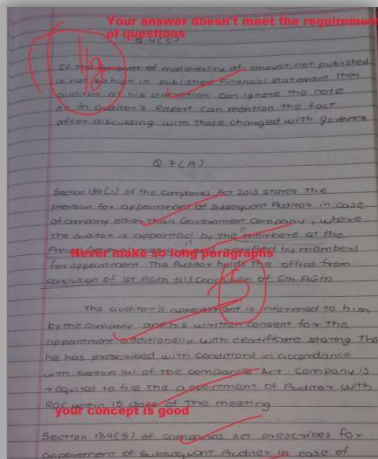 Your answer doesn't meet the requiremen
of questions
Q.4(C)
If the amount of materiality of amount not published
is not which in published financial statement then
auditor at his discretion can ignore the note
or in auditor's Report can mention the fact
after discussing with those changed with governa
Q.7(A)
Section 139(1) of the companies Act 2013 states the
provision for appointment of subsequent Auditor in case
of company other than Government Company, where
the auditor is appointed by the members at the
Never make so long paragraphs
by members
for appointment. The Auditor holds the office from
conclusion of 1st AGM till conclusion of 6th AGM
5
The auditor's appointment is informed to him
by the company and his written consent for the
appointment additionally with certificate stating tha
he has prescribed with conditions in accordance
with section 141 of the companies Act. Company is
required to file the appointment of Auditor with
ROC within 15 days of the meeting
your concept is good
Section 139(5) of companies Act prescribes for
appointment of Subsequent Auditor in case of